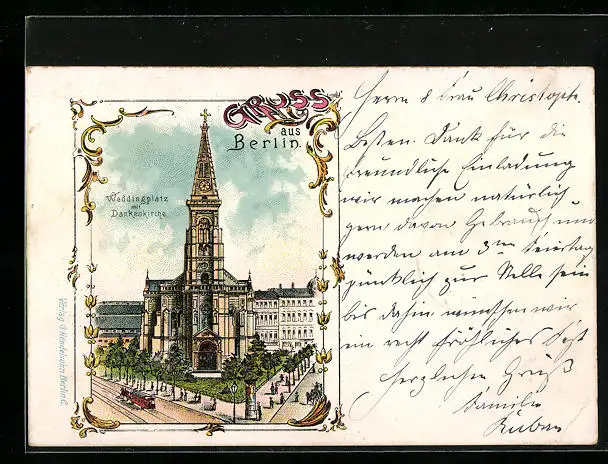 GRUSS
aus
Berlin.
Weddingplatz
mit
Dankeskirche
Herrn & Frau Christoph.
Besten Dank für die
freundliche Einladung
wir machen natürlich
gern davon Gebrauch und
werden am 3ten Feiertag
pünktlich zur Stelle sein
bis dahin wünschen wir
ein recht fröhliches Fest
Herzlichen Gruß
Familie